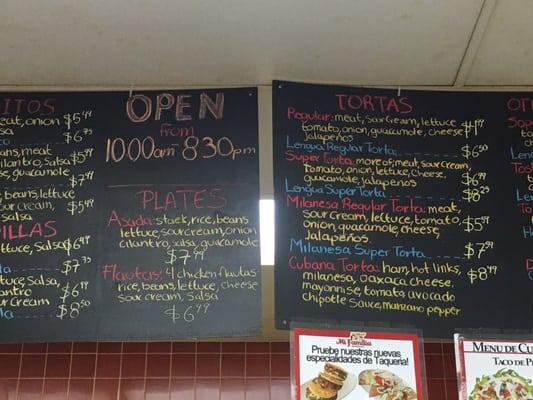 ITOS
meat, onion $5.49
salsa
$6.75
beans, meat
cilantro, salsa $5.49
se, guacamole
$7.99
beans, lettuce
cream, $5.49
salsa
ILLAS
lettuce, salsa $6.49
$7.75
lettuce, salsa
$6.99
sour cream
$8.50
OPEN
from
10:00am - 8:30pm
PLATES
Asada: steak, rice, beans
lettuce, sour cream, onion
cilantro, salsa, guacamole
$7.99
Flautas: 4 chicken flautas
rice, beans, lettuce, cheese
sour cream, salsa
$6.99
TORTAS
Regular: meat, sour cream, lettuce
tomato, onion, guacamole, cheese $4.99
Jalapeños
Lengua Regular Torta $6.50
Super Torta: more of; meat, sour cream,
tomato, onion, lettuce, cheese,
guacamole, jalapeños $6.99
Lengua Super Torta $8.25
Milanesa Regular Torta: meat,
sour cream, lettuce, tomato,
onion, guacamole, cheese, $5.99
Jalapeños.
Milanesa Super Torta $7.99
Cubana Torta: ham, hot links,
milanesa, oaxaca cheese, $8.99
mayonnise, tomato, avocado
chipotle sauce, manzano pepper
Mi Familia
Pruebe nuestras nuevas
especialidades de Taqueria!
MENU DE
TACO DE